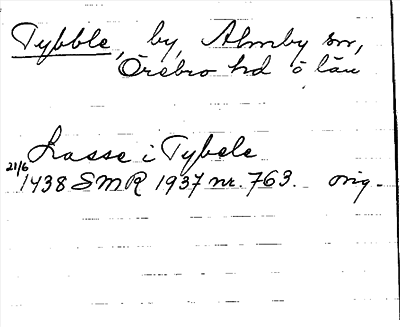 Tybble, by, Almby sn,
Örebro hd ö län
Lasse i Tybele
21/6 1438 SMR 1937 nr. 763. orig.